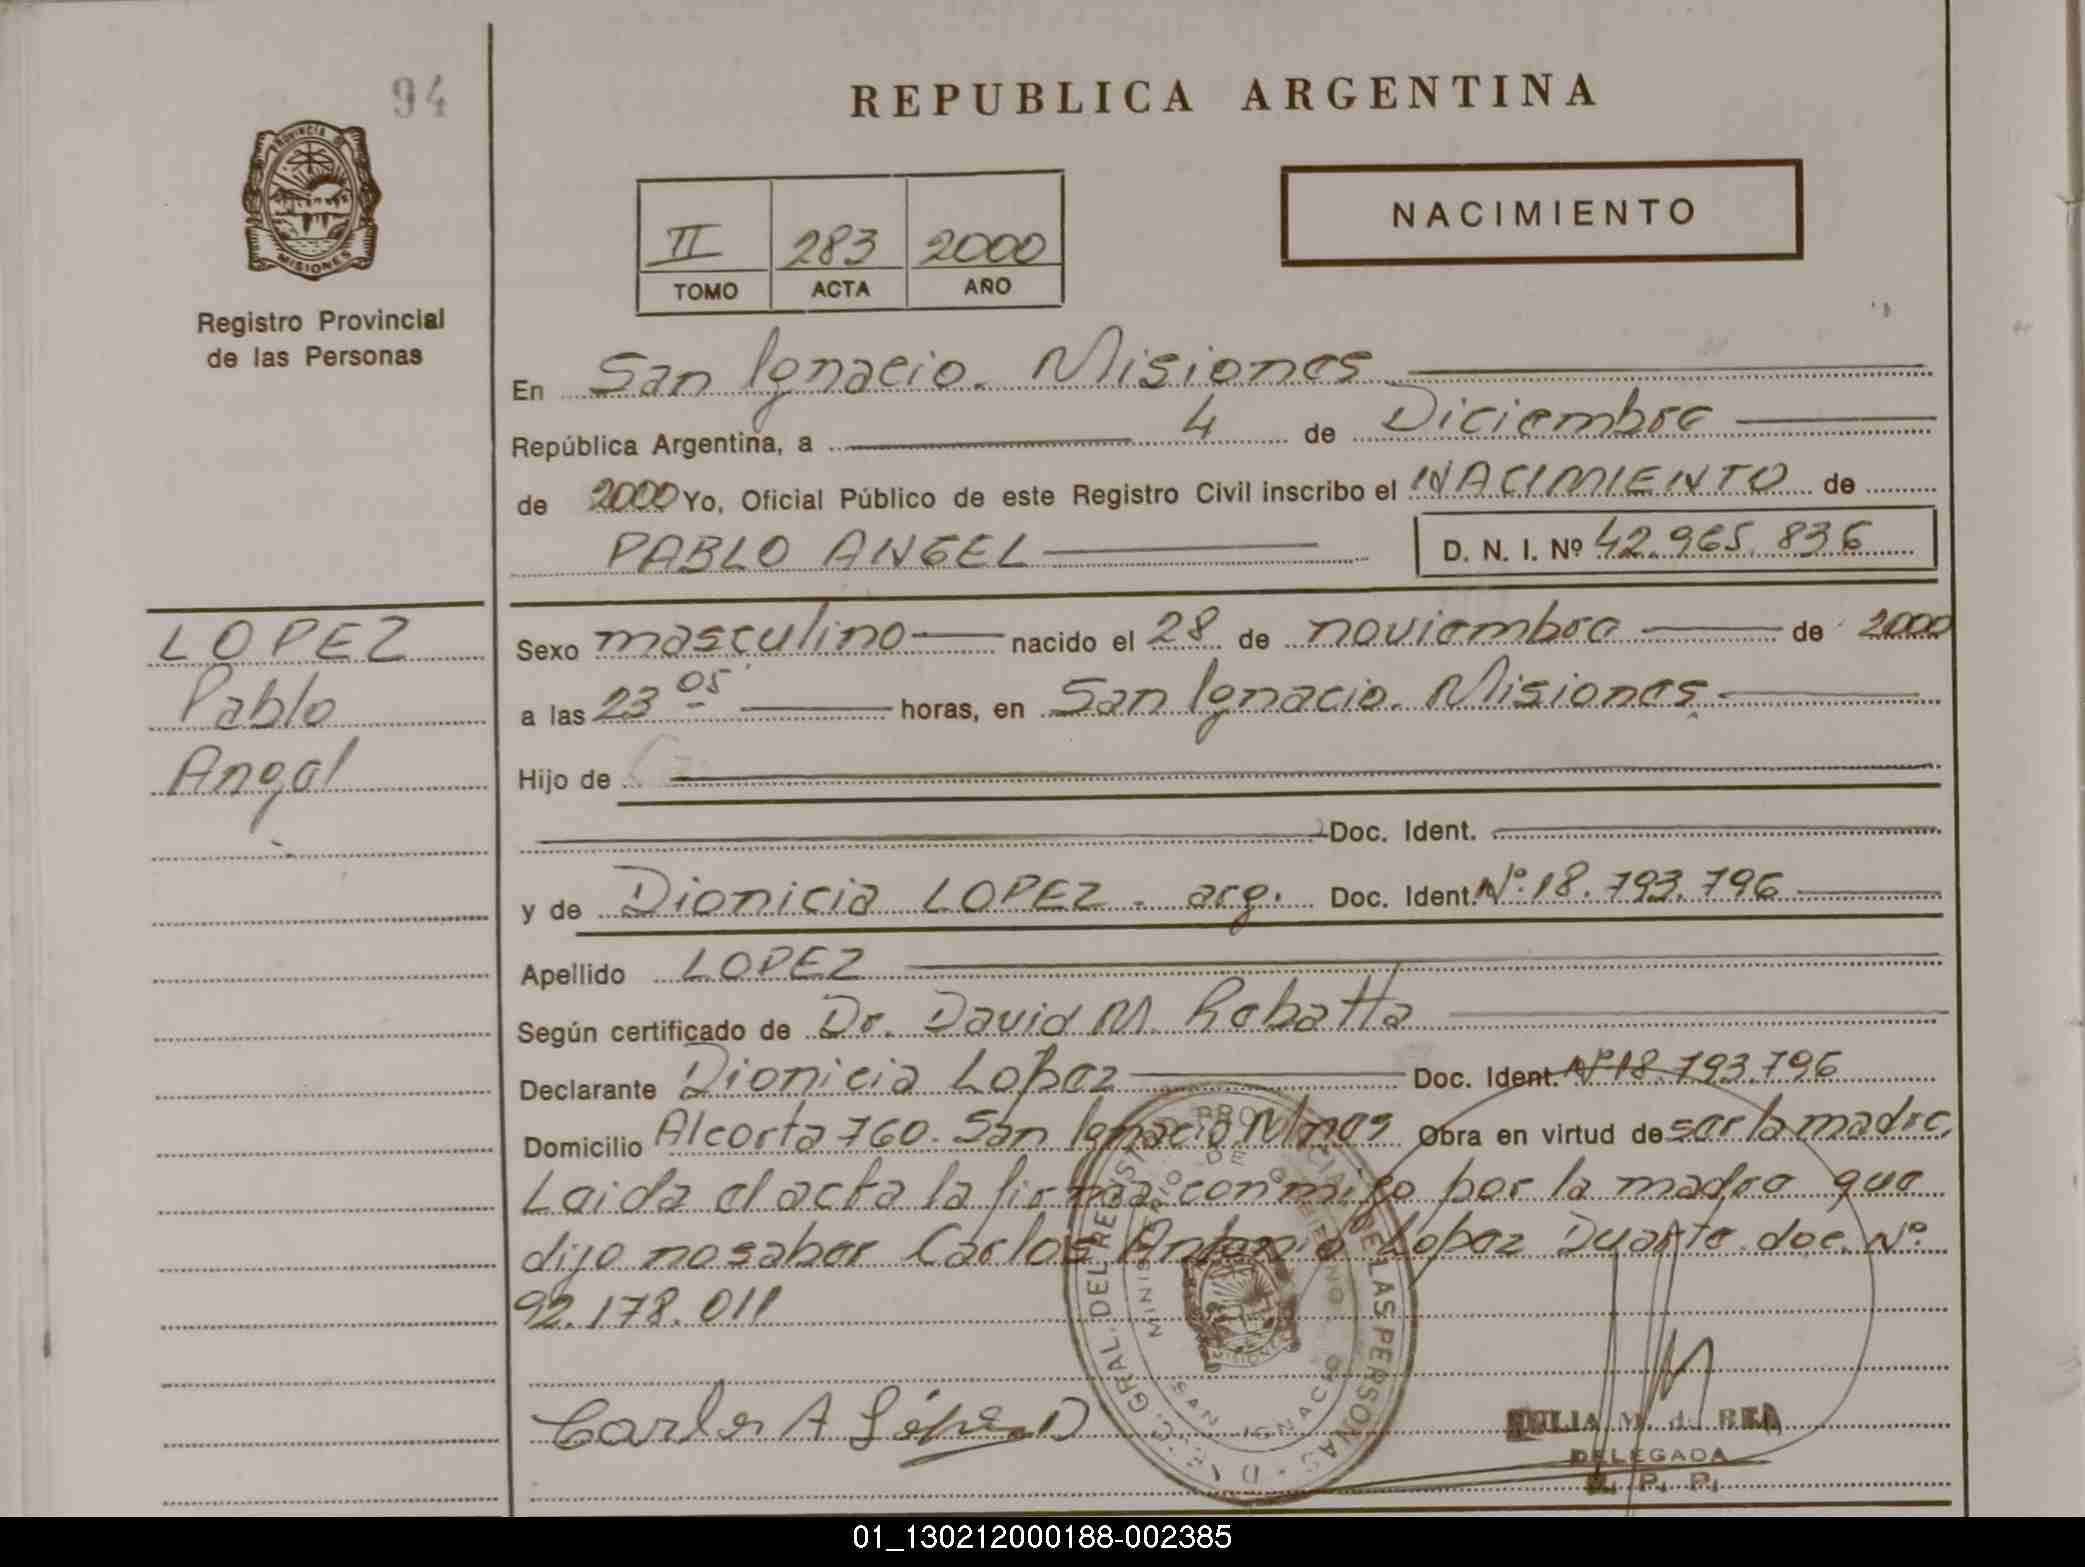 94
REPUBLICA ARGENTINA
PROVINCIA DE
MISIONES
Registro Provincial
de las Personas
II 283 2000
TOMO ACTA AÑO
NACIMIENTO
En San Ignacio. Misiones
República Argentina, a 4 de Diciembre
de 2000 Yo, Oficial Público de este Registro Civil inscribo el NACIMIENTO de
PABLO ANGEL D. N. I. Nº 42.965.836
LOPEZ
Pablo
Angel
Sexo masculino nacido el 28 de noviembre de 2000
a las 23 05 horas, en San Ignacio. Misiones
Hijo de
Doc. Ident.
y de Dionicia LOPEZ - arg. Doc. Ident. Nº 18.793.796
Apellido LOPEZ
Según certificado de Dr. David M. Rebatta
Declarante Dionicia Lopez Doc. Ident. Nº 18.793.796
Domicilio Alcorta 760. San Ignacio Mnes Obra en virtud de ser la madre,
Leida el acta la firma conmigo por la madre que
dijo no saber Carlos Antonio Lopez Duarte doc. Nº
92.178.011
Carlos A López D
DELEGADA
R. P. P.
DIREC. GRAL. DEL REGIST. PROVINCIAL DE LAS PERSONAS
MINISTERIO DE GOBIERNO
SAN IGNACIO
MISIONES
01_130212000188-002385